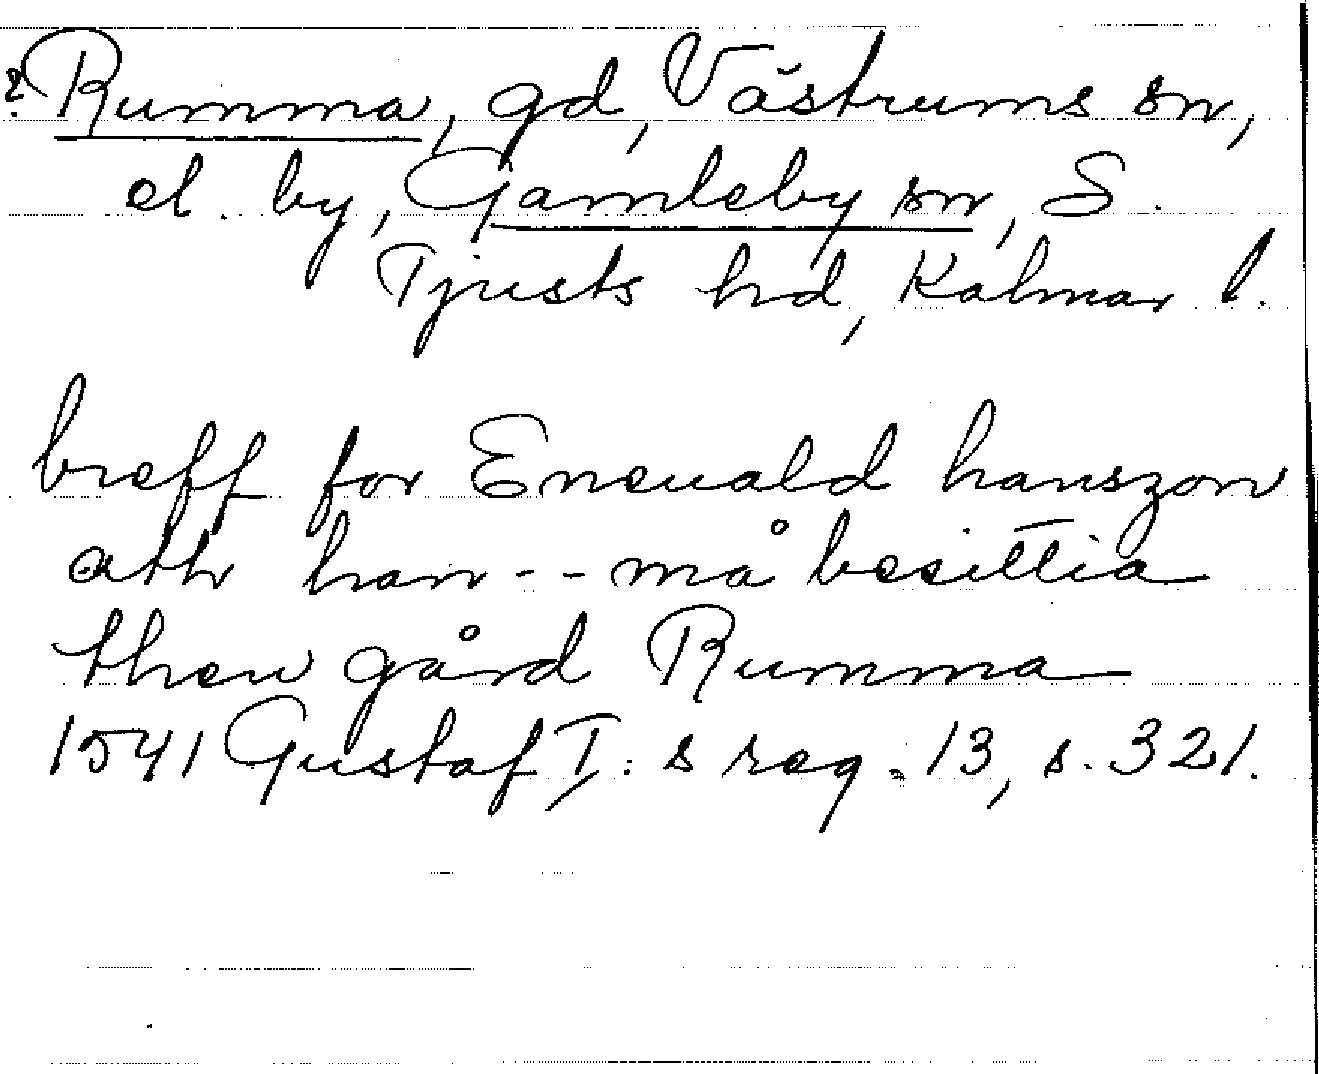 ? Rumma, gd, Västrums sn,
el. by, Gamleby sn, S.
Tjusts hd, Kalmar l.
breff for Eneuald hanszon
ath han -- må besittia
then gård Rumma
1541 Gustaf I:s reg. 13, s. 321.